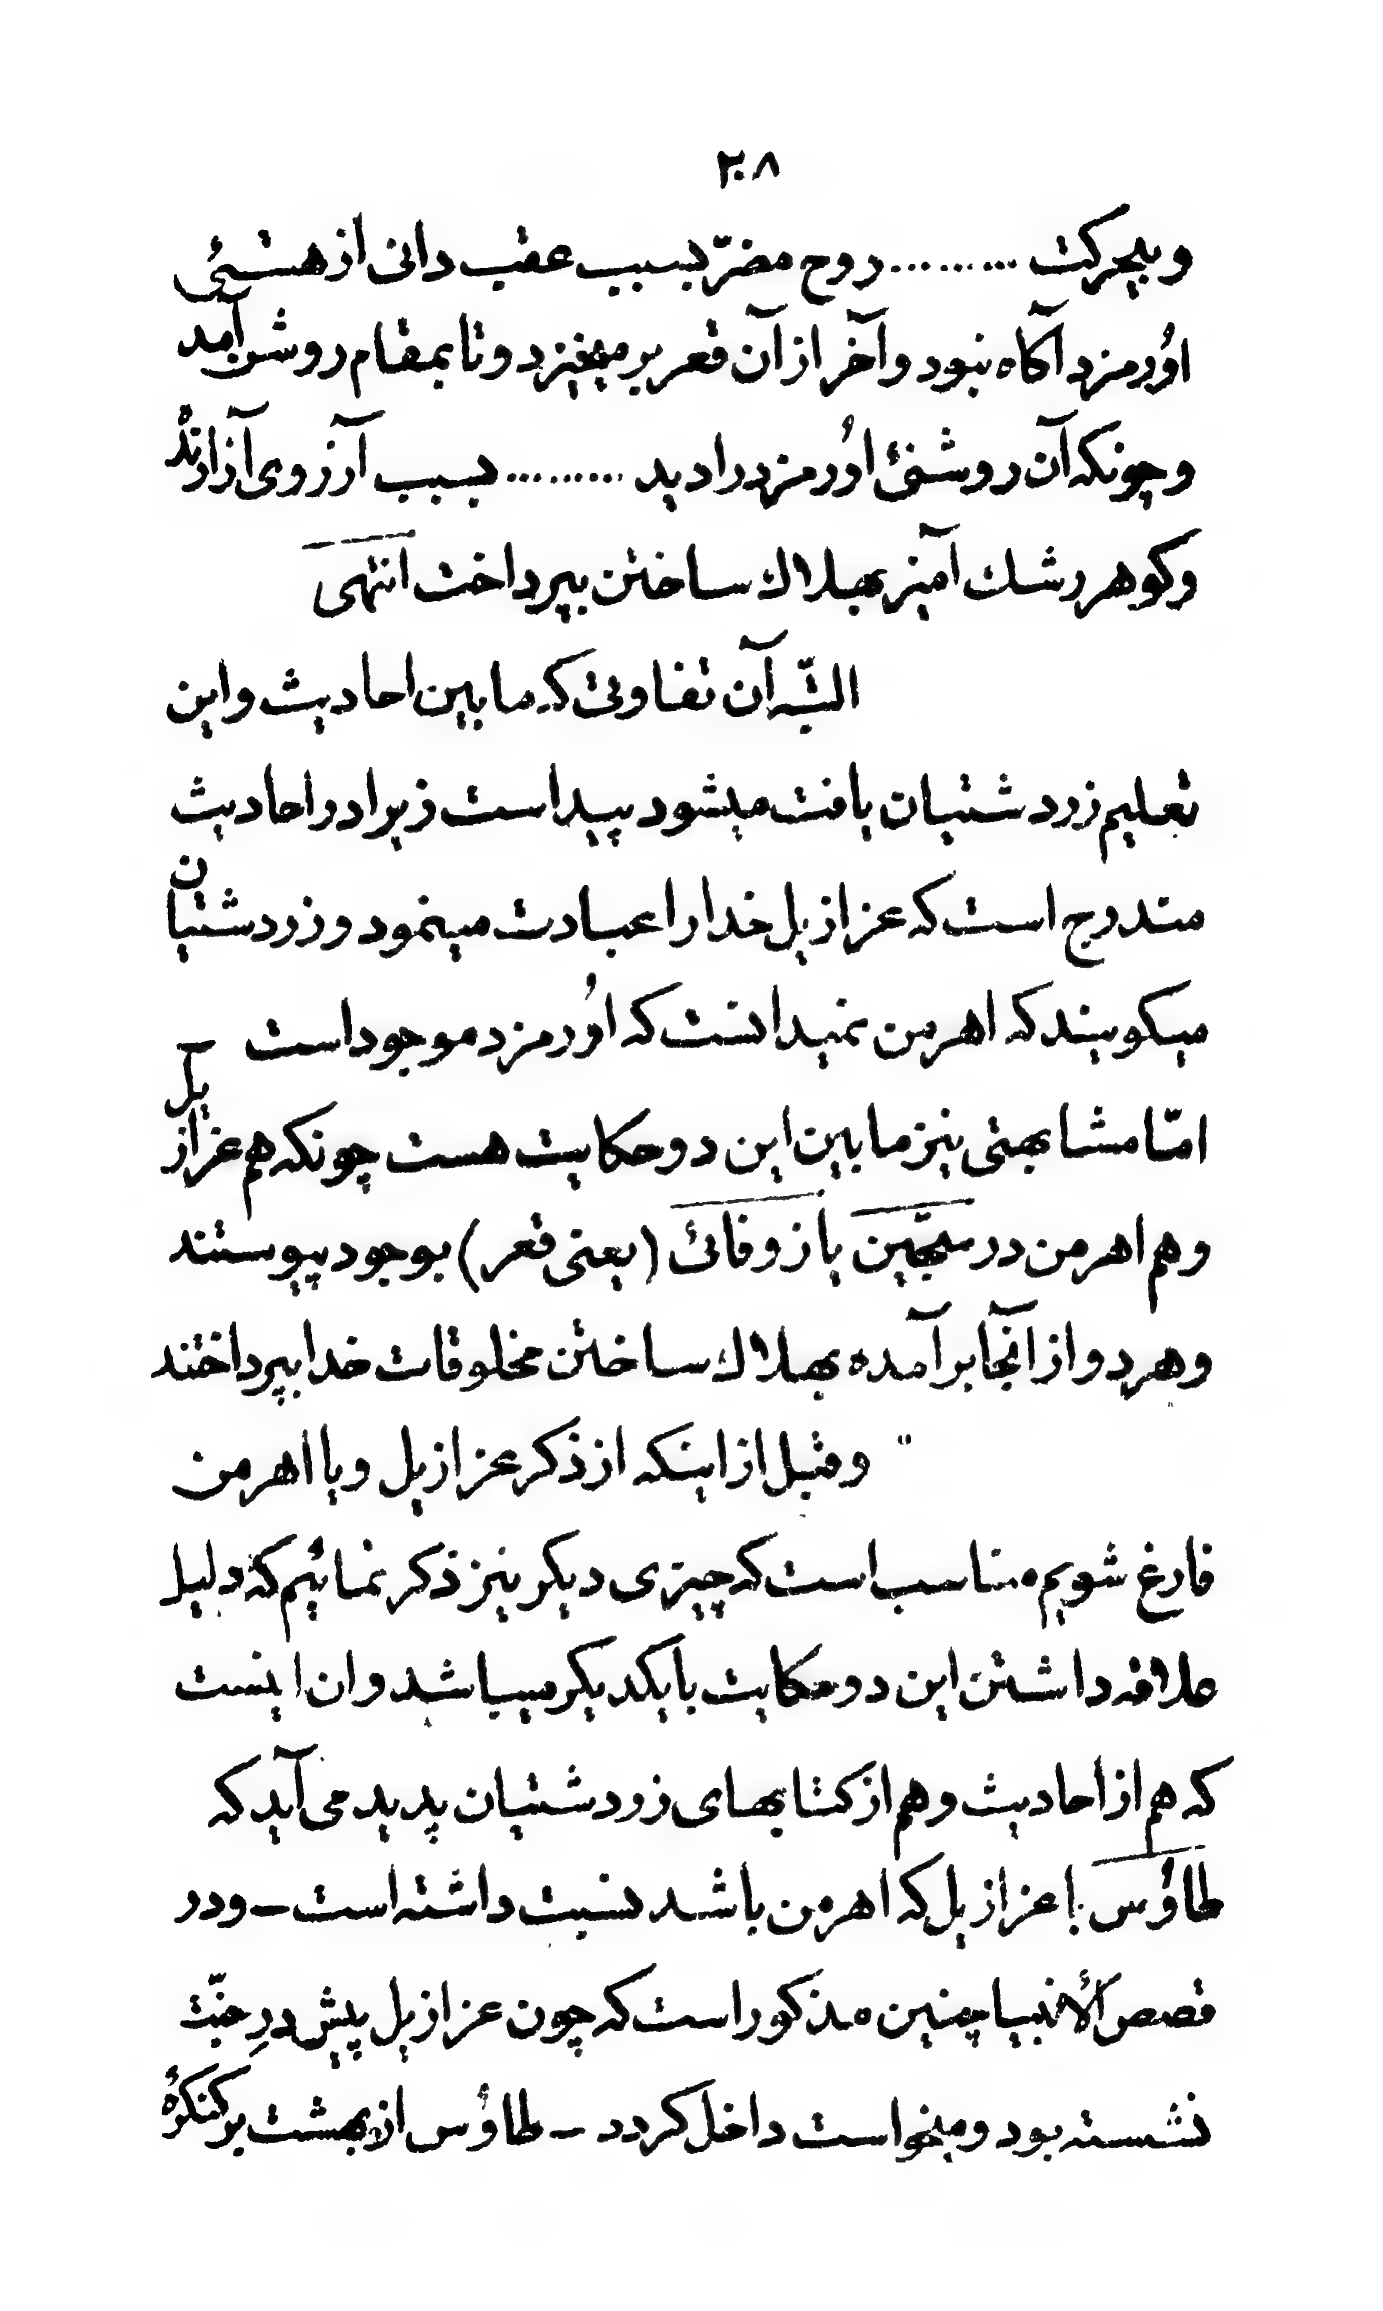 ۲۰۸
و بیحرکت ......... روح مضرّ بسبب عقب دانی از هستئی
اوُرمزد آکاه نبود و آخر از آن قعر بر میخیزد و تا بمقام روشن آمد
و چونکه آن روشنئ اوُرمزد را دید ......... بسبب آرزوی آزارنْدُ
و کوهر رشك آمیز بهلاك ساختن بپرداخت انتهی
البتّه آن تفاوتی که مابین احادیث و این
تعلیم زردشتیان یافت میشود پیداست زیرا در احادیث
مندرج است که عزازیل خدا را عبادت مینمود و زردشتیان
میکویند که اهرمن نمیدانست که اوُرمزد موجود است
امّا مشابهتی نیز مابین این دو حکایت هست چونکه هم عزازیل
و هم اهرمن در سجّین یا زوفائ (یعنی قعر) بوجود پیوستند
و هر دو از آنجا بر آمده بهلاك ساختن مخلوقات خدا بپرداختند
و قبل از اینکه از ذکر عزازیل و یا اهرمن
فارغ شویم مناسب است که چیزی دیکر نیز ذکر نمائیم که دلیل
علاقه داشتن این دو حکایت با یکدیکر میباشد و ان اینست
که هم از احادیث و هم از کتابهای زردشتیان پدید می آید که
طاؤس با عزازیل که اهرمن باشد نسبت داشته است – و در
قصص الأنبیا چنین مذکور است که چون عزازیل پیش درِ جنّت
نشسته بود و میخواست داخل کردد – طاؤس از بهشت بر کنکرهٔ